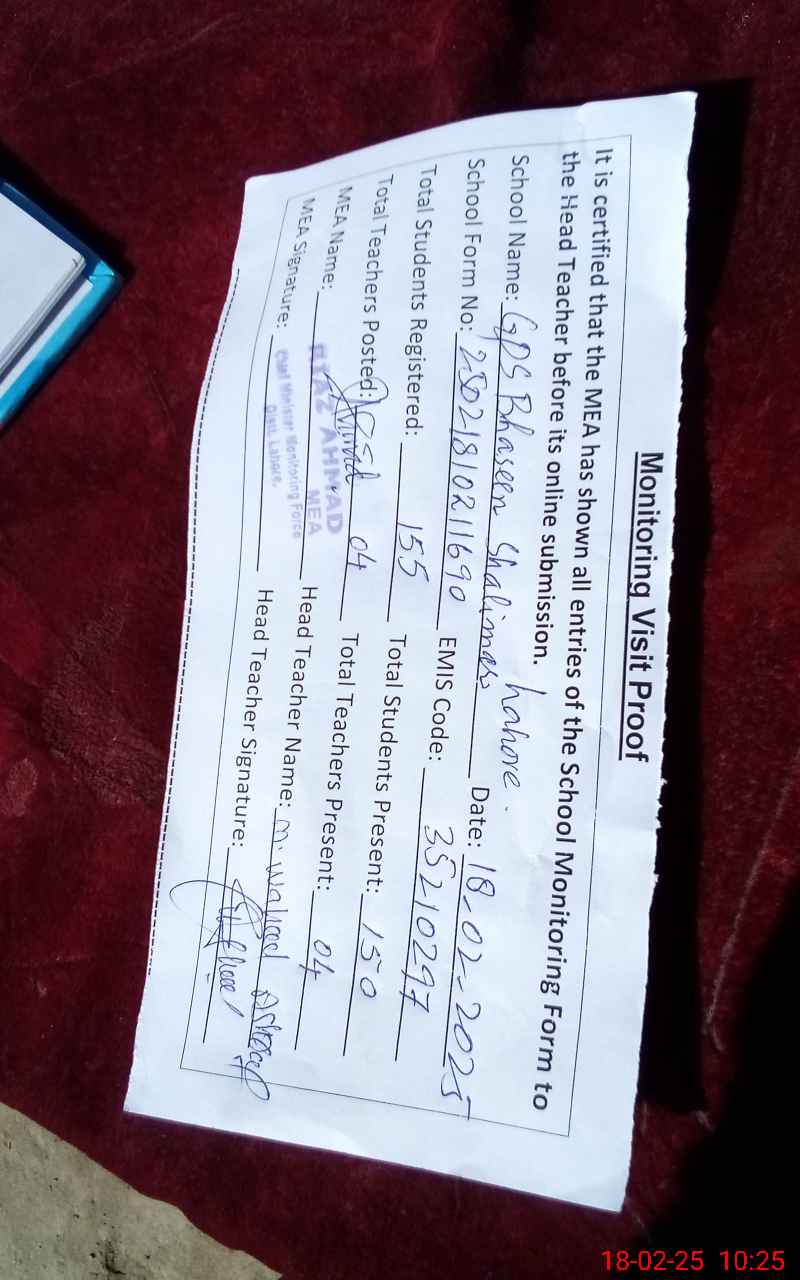 Monitoring Visit Proof
It is certified that the MEA has shown all entries of the School Monitoring Form to
the Head Teacher before its online submission.
School Name: GPS Bhaseen Shalimar Lahore. Date: 18-02-2025
School Form No: 25021810211690 EMIS Code: 35210297
Total Students Registered: 155 Total Students Present: 150
Total Teachers Posted: 04 Total Teachers Present: 04
MEA Name: AHMAD Head Teacher Name: M. Waheed Ashraf
MEA
MEA Signature: Head Teacher Signature:
Chief Minister Monitoring Force
Distt. Lahore.
18-02-25 10:25